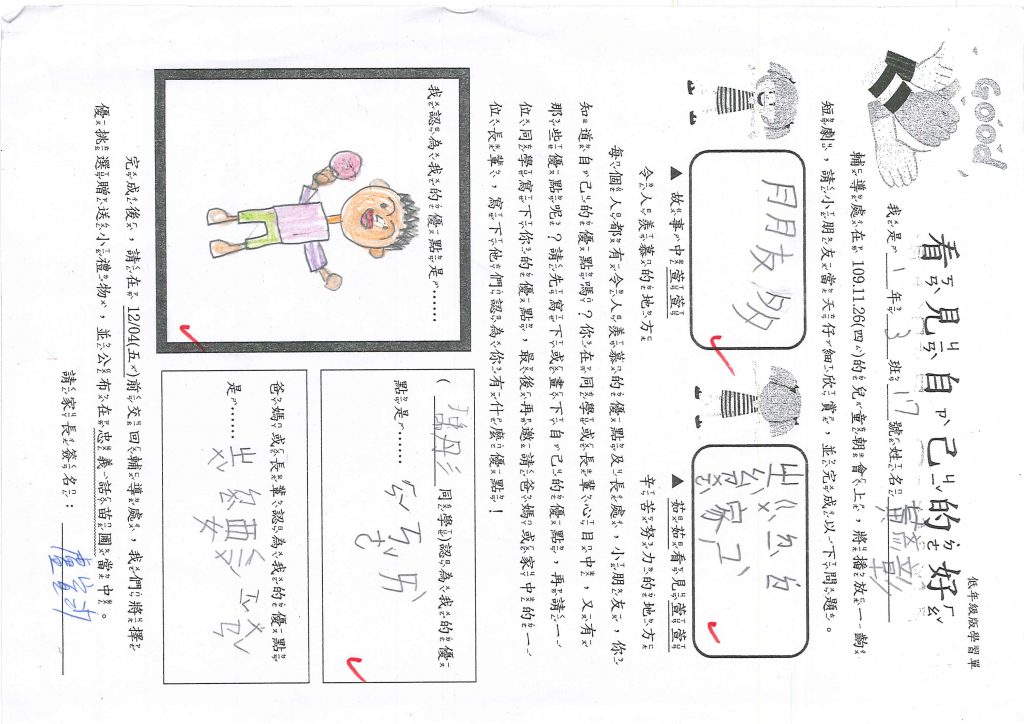 GOOD
低年級版學習單
看見自己的好
我是 1 年 3 班 17 號姓名
輔導處在 109.11.26(四)的兒童朝會上，將播放一齣
短劇，請小朋友當天仔細欣賞，並完成以下問題。
月月友多
▲ 故事中萱萱
令人羨慕的地方
▲ 茹茹看見萱萱
辛苦努力的地方
每個人都有令人羨慕的優點及長處，小朋友，你
知道自己的優點嗎？你在同學或長輩心目中，又有
那些優點呢？請先寫下或畫下自己的優點，再請一
位同學寫下你的優點，最後再邀請爸媽或家中的一
位長輩，寫下他們認為你有什麼優點！
我認為我的優點是……
( 同學)認為我的優
點是……
爸媽或長輩認為我的優點
是……
完成後，請在 12/04(五)前交回輔導處，我們將擇
優挑選贈送小禮物，並公布在忠義話苗圃當中。
請家長簽名：